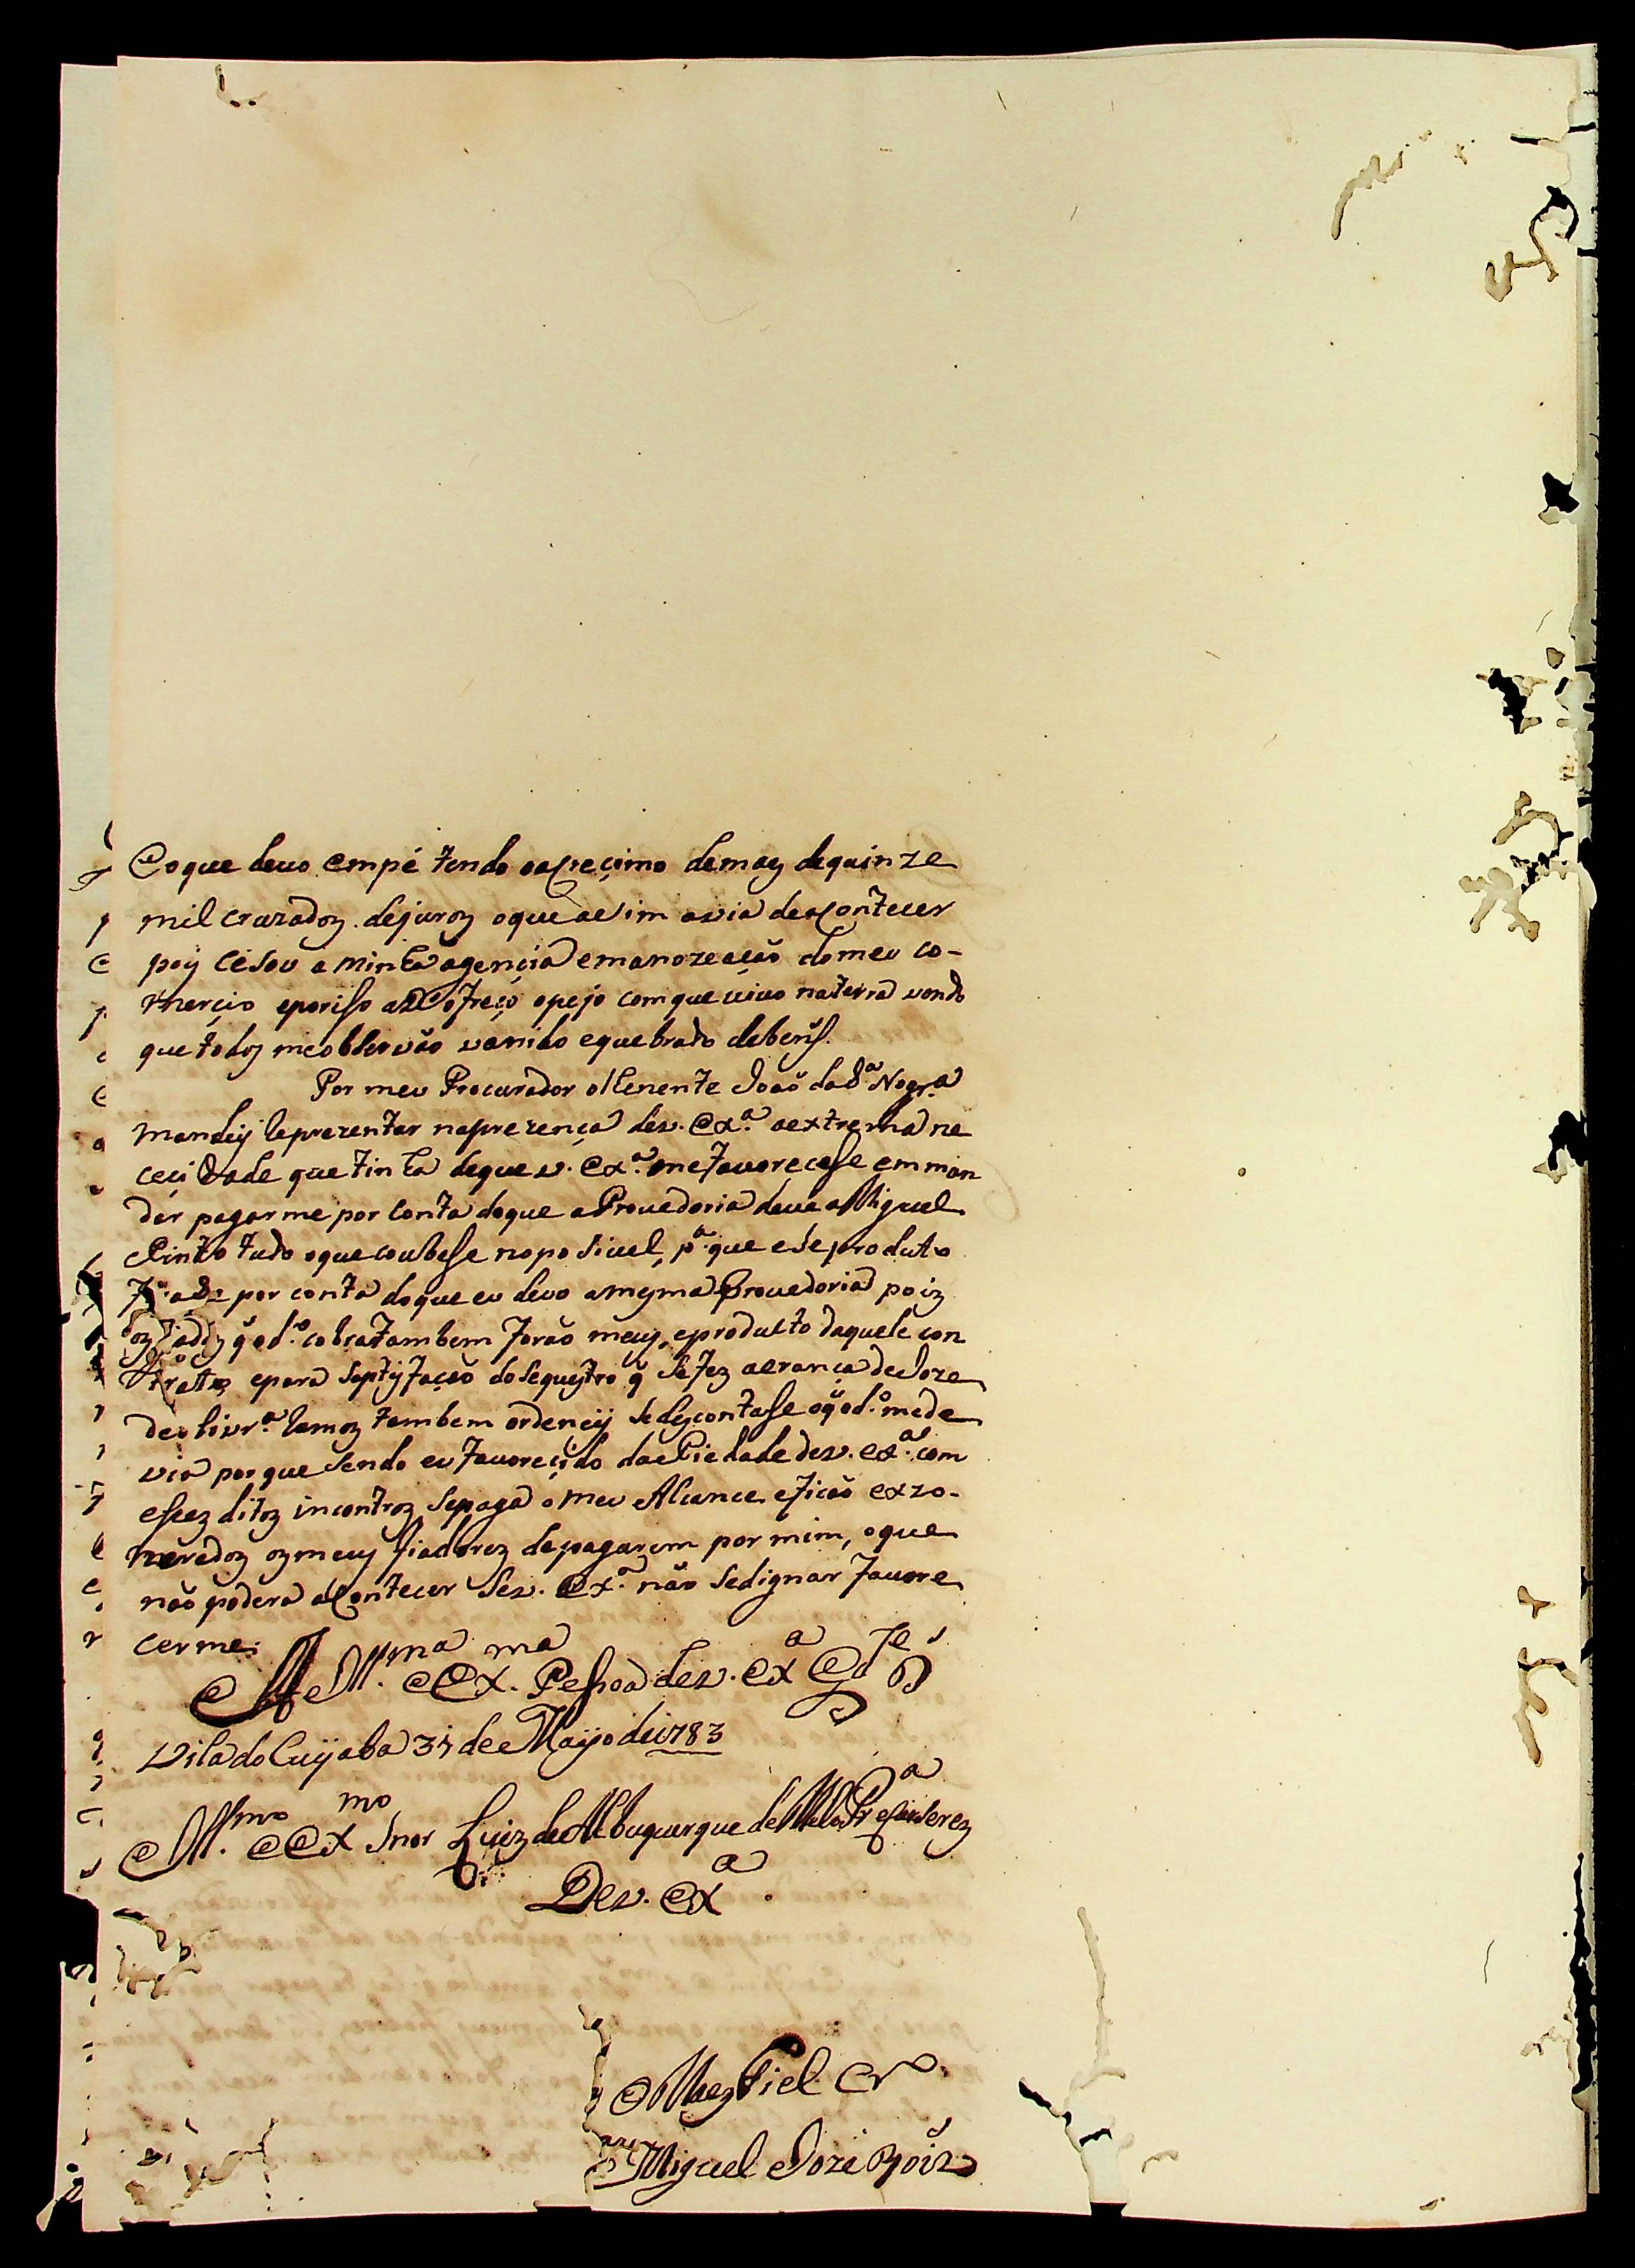 Eoque devo empé tendo oacrecimo demaez dequinze
mil cruzadoz dejuroz oque acim avia deacontecer
poiz cesou a minha agencia emanozeação domeu co-
mercio eporisso ofreço opejo comque vivo naterra vendo
que todoz meobservão varrido equebrado debenz.
Por meu Procurador oTenente João daSª Nogrª
mandey reprezentar naprezença dev. Exª aextremna ne
cecidade que tinha deque v. Exª mefavorecese em man
dar pagarme por conta doque aProvedoria deve aMiguel
Pinto tudo oque coubese noposivel, pª que ese produto
por conta doque eu devo amezma Provedoria poiz
q̃ od.º cobra tambem forão meuz, eproducto daquele con
trato epara do sequeztro q̃ sefez aerança deJoze
de Olivrª Lemoz tambem ordeney sedezcontase oq̃ od.º mede
via porque sendo eu favorecido daPiedade dev. exª com
essez ditoz incontroz sepaga o meu Alcance eficão exzo-
neradoz oz meuz fiadorez depagarem por mim, oque
não podera acontecer sev. Exª não sedignar favore
cerme.
A Illma e Exma Pessoa dev. Exª Gde Ds
Vila do Cuyaba 31 de Mayo de 1783
Illmo e Exmo Snor Luiz de Albuquerque de Mello Prª eCacerez
Dev. Exª
Maez Fiel Cr.º
Miguel Joze Roiz